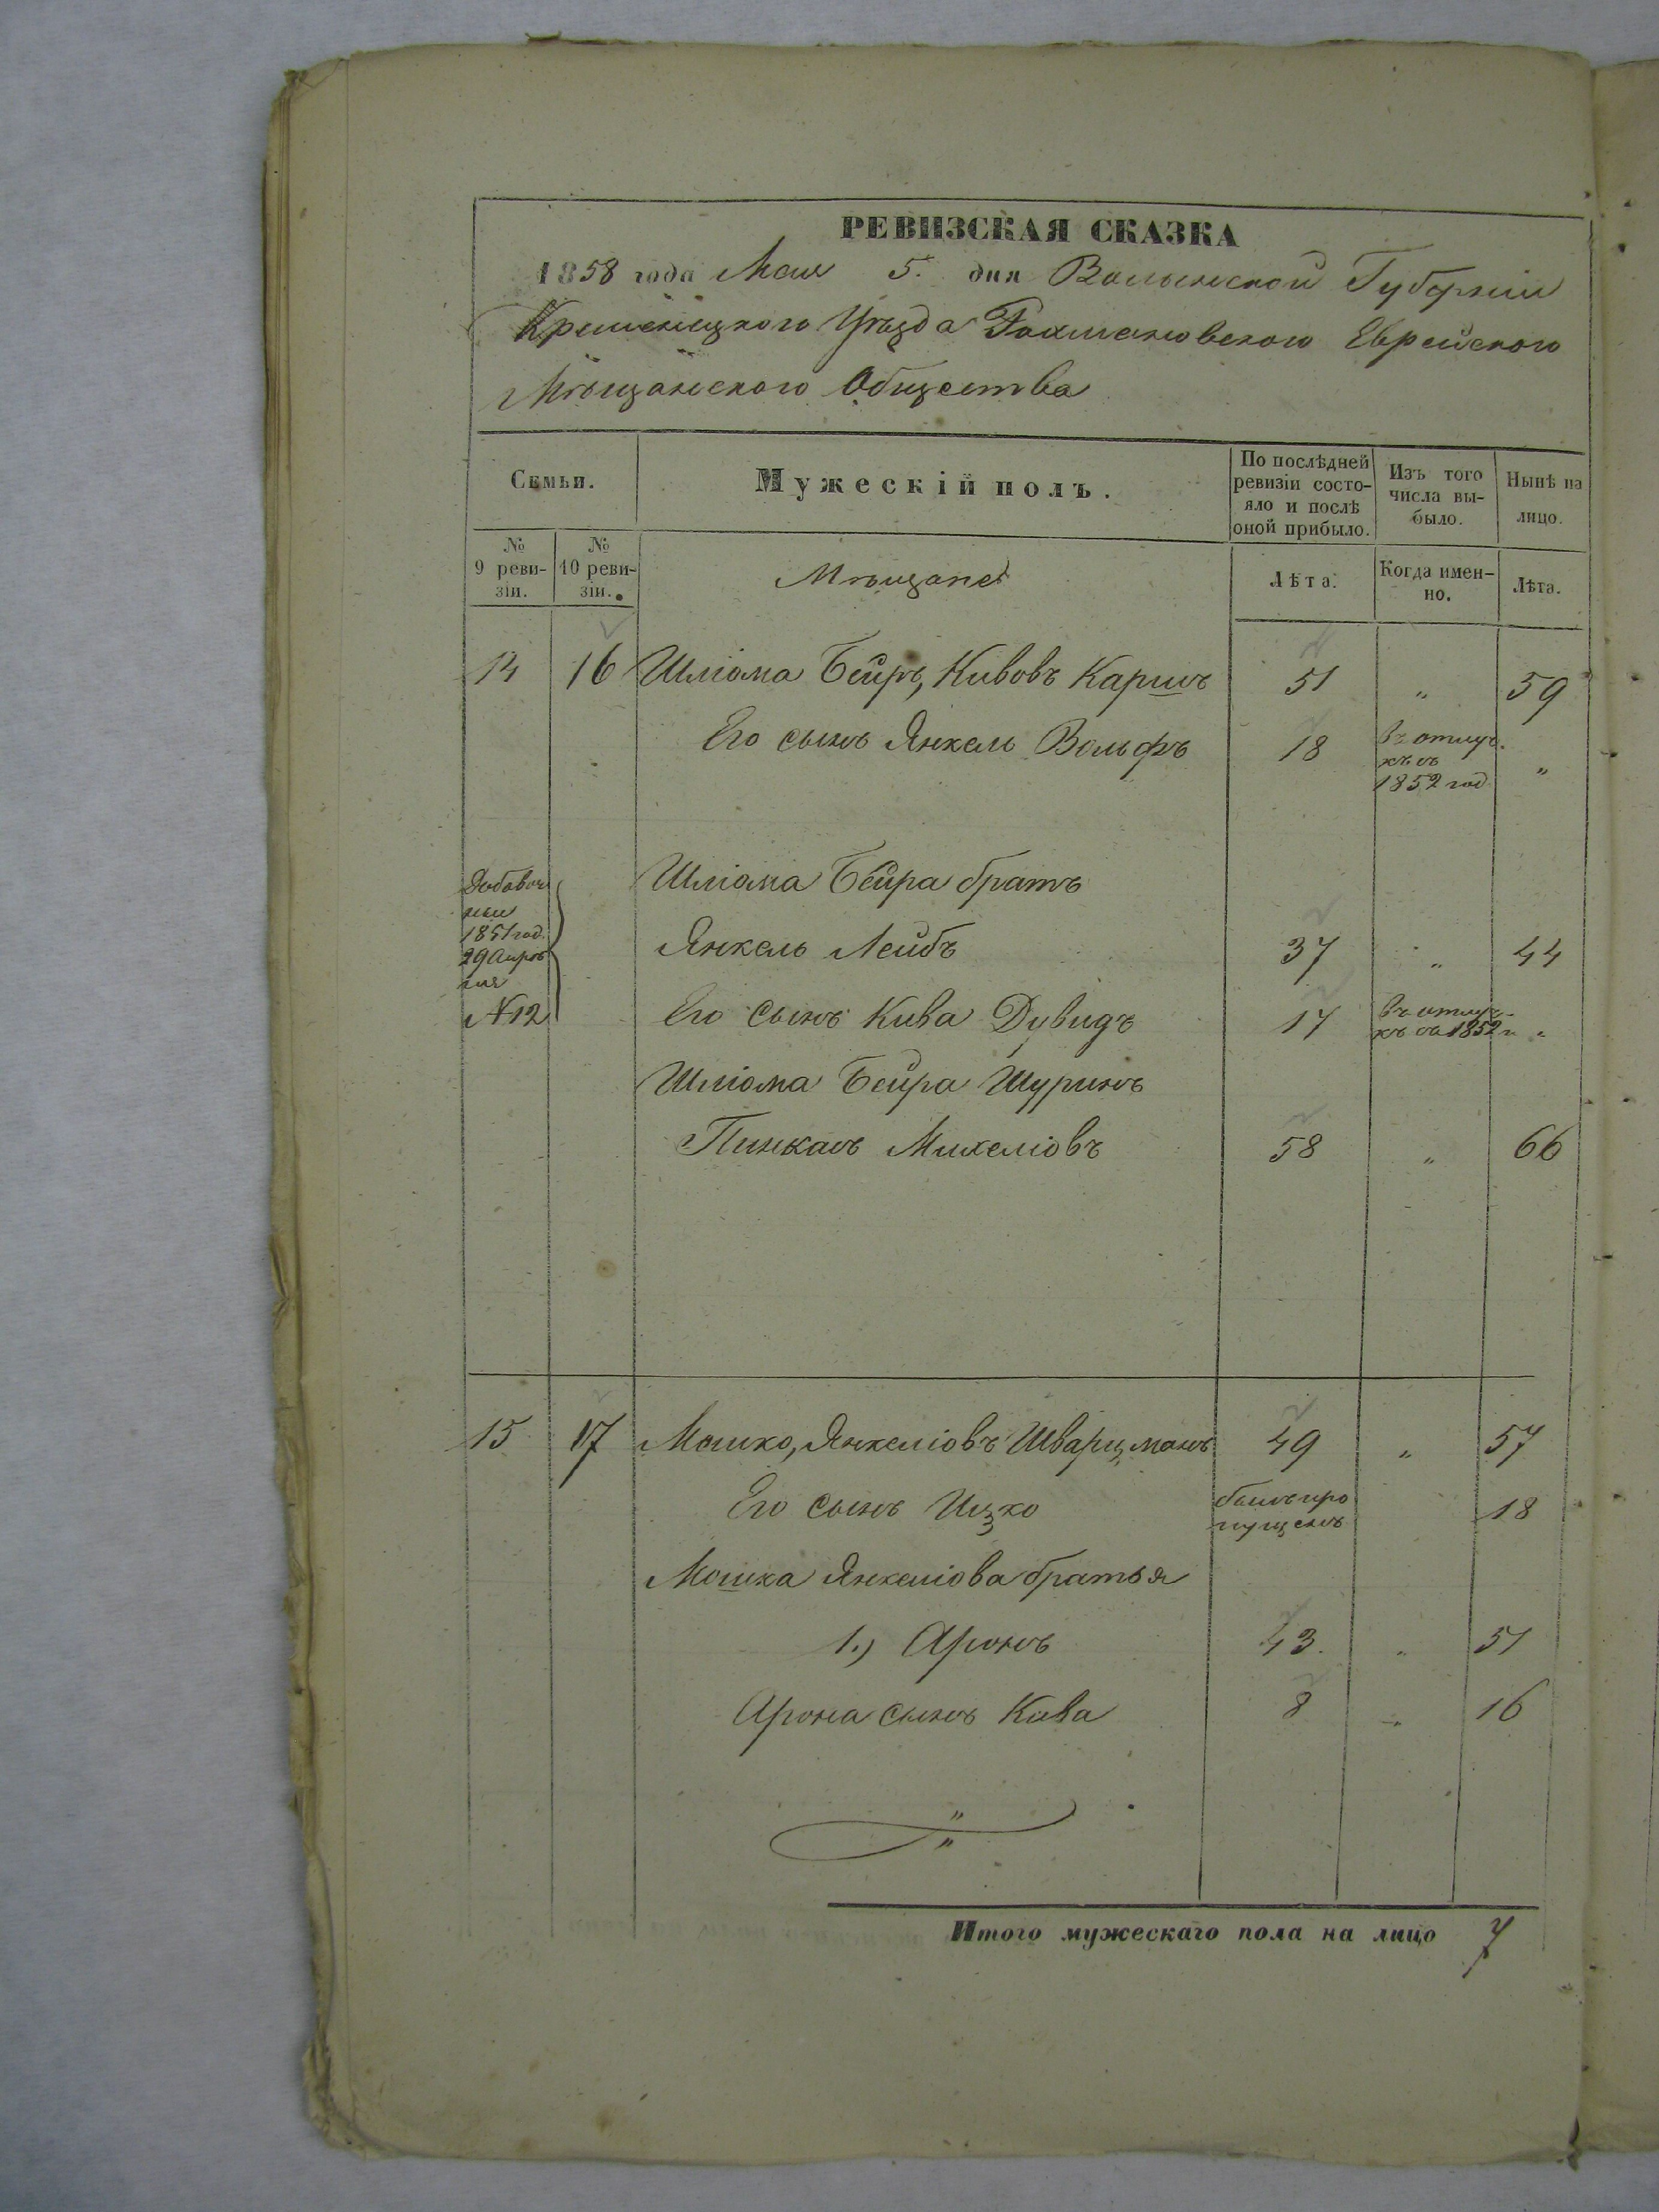 РЕВИЗСКАЯ СКАЗКА
1858 года Мая 5. дня Волынской Губерніи
Кременецкого Уѣзда Рахмановского Еврейского
Мѣщанского Общества
Семьи. Мужескій полъ. По послѣдней ревизіи состояло и послѣ оной прибыло. Изъ того числа выбыло. Нынѣ на лицо.
№ 9 ревизіи. № 10 ревизіи. Мѣщане Лѣта. Когда именно. Лѣта.
14 16 Шліома Бейръ, Кивовъ 51 " 59
Его сынъ Янкель Вольфъ 18 въ отлучкѣ съ 1852 год "
Добавочныи
1851 год.
29 Апрѣля
№ 12
Шліома Бейра братъ
Янкель Лейбъ 37 " 44
Его сынъ Кива Дувидъ 17 въ отлучкѣ съ 1852 г "
Шліома Бейра Шуринъ
Пинкасъ Михеліовъ 58 " 66
15 17 Мошко, Янкеліовъ Шварцманъ 49 " 57
Его сынъ Ицко былъ пропущенъ 18
Мошка Янкеліова братья
1.) Аронъ 43. " 51
Арона сынъ Кива 8 " 16
Итого мужескаго пола на лицо 7